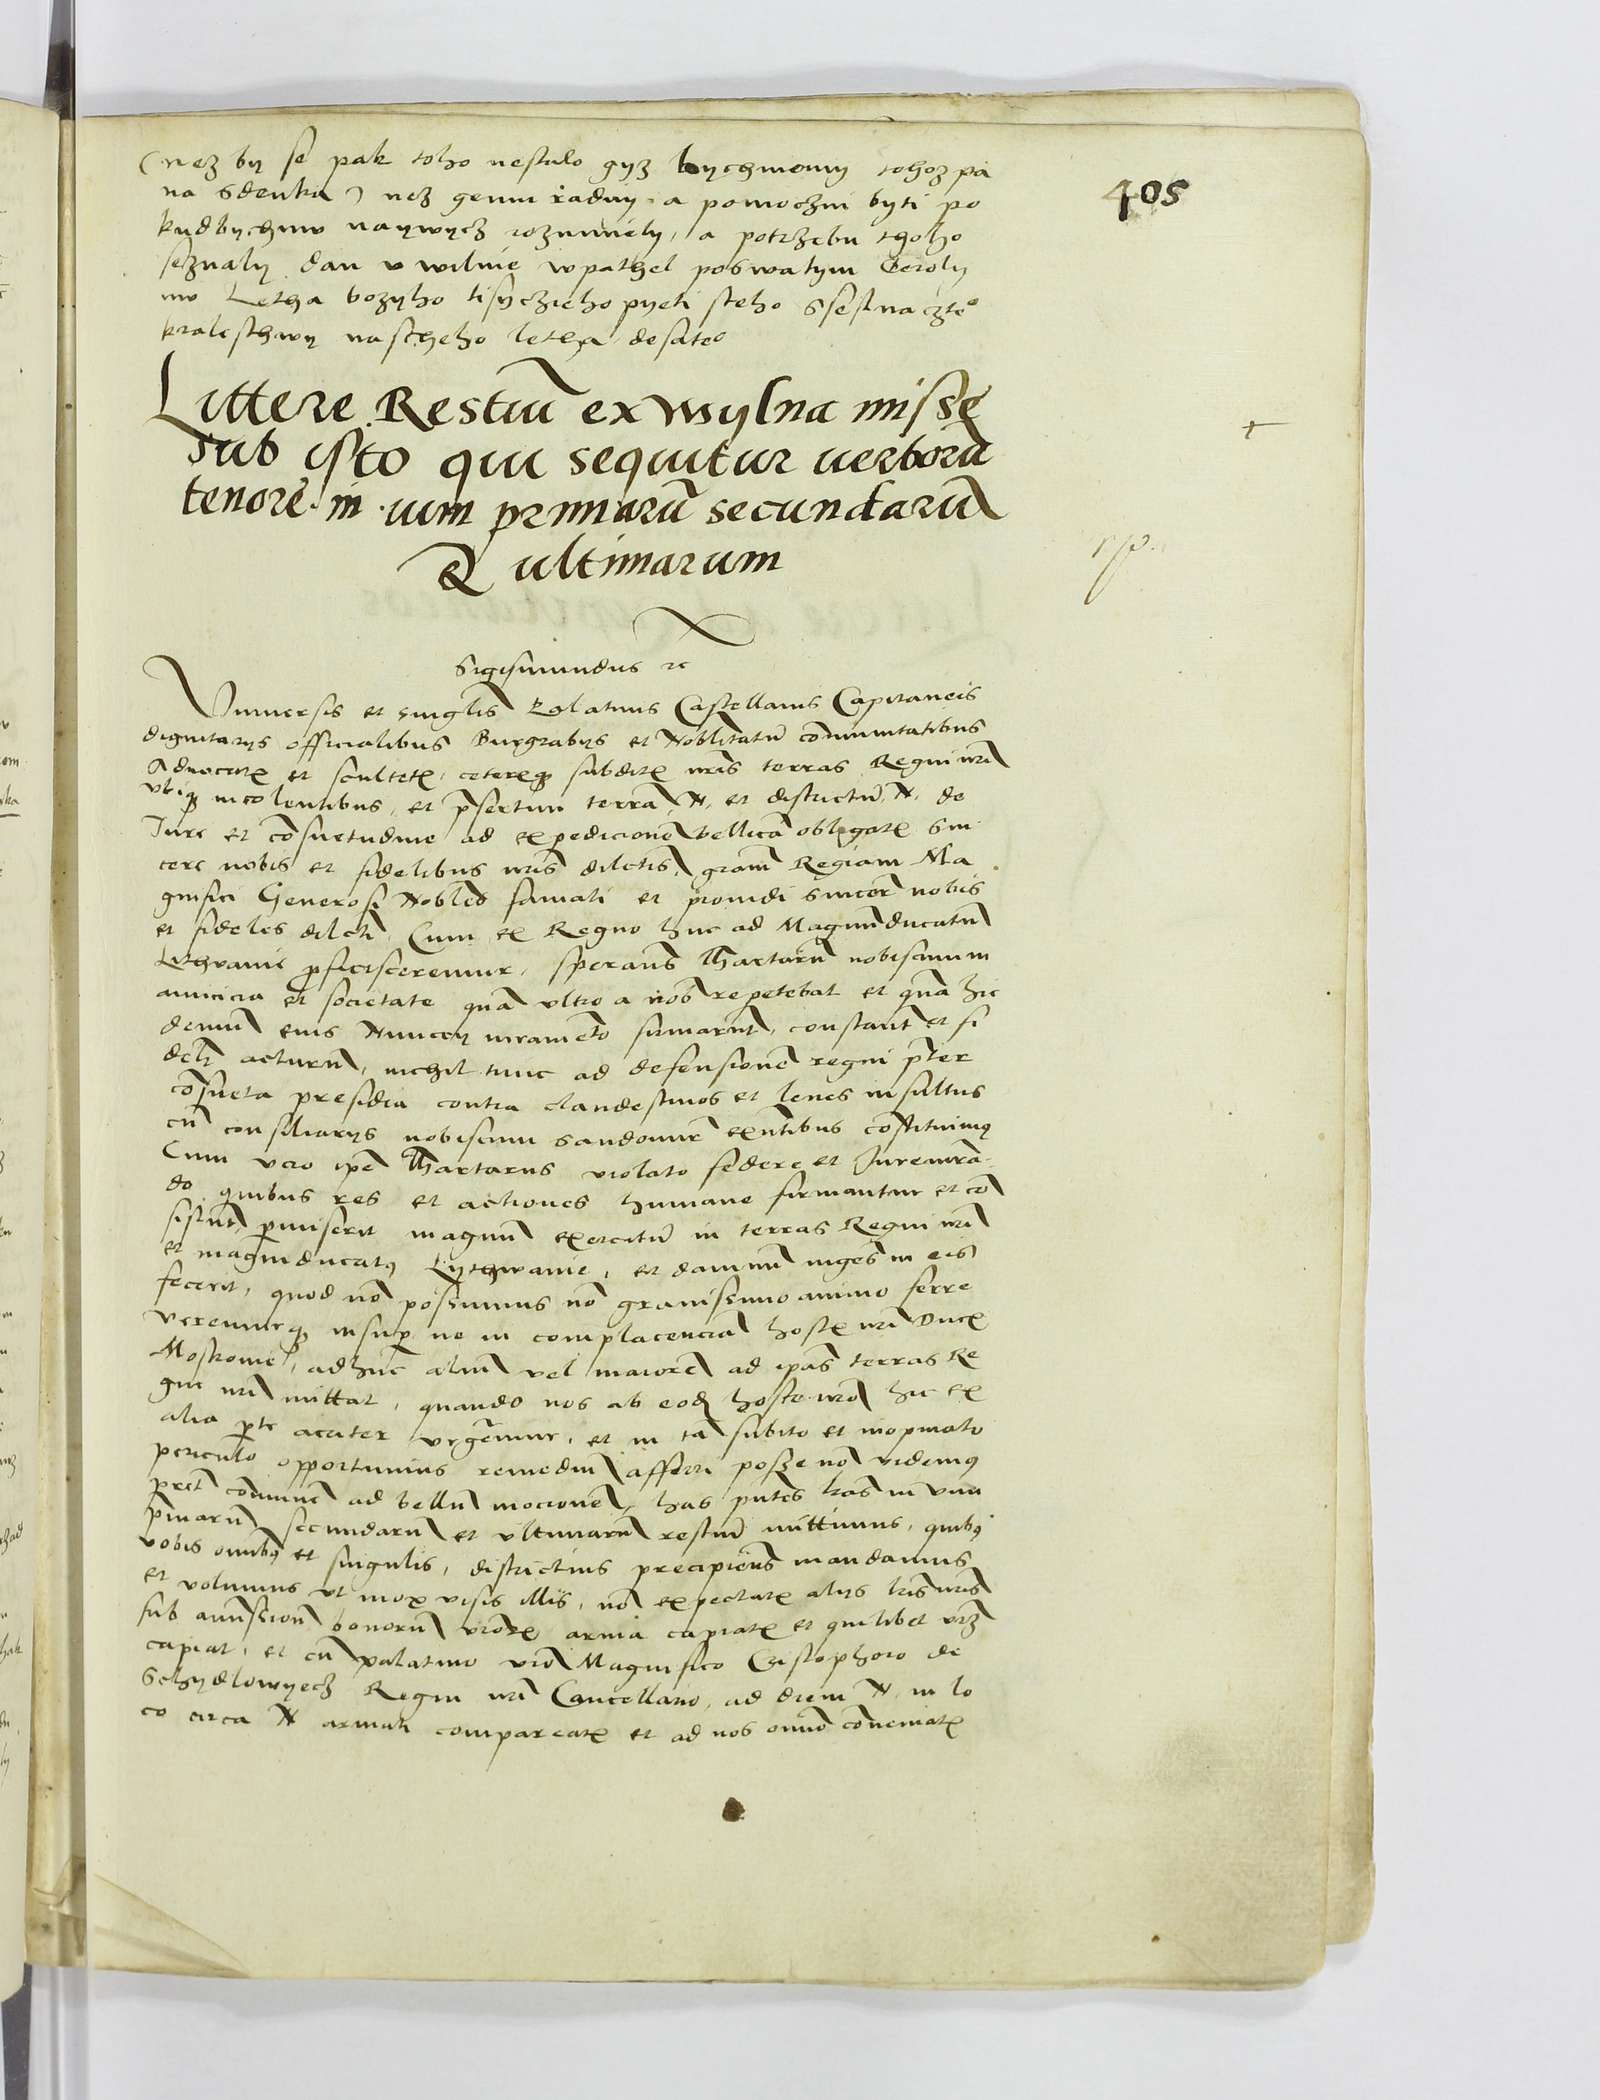 (nez by se pak toho nestalo gyz bychmowy tohoz pa
na Sdenka) nez gemu radny a pomoczni byti po
kudbychmo naywycz rozumiely, a potrzebu thoho
seznaly dan v wilnie wpathek poswatym
mo Letha bozyho tisyczieho pyeti steho Ssestnaczteͦ
kralesthwy nascheho letha desateͦ
Littere Restiū ex Wylna missę
sub isto qui sequitur uerborū
tenorē in uim primarū secundarū
& ultimarum
405
+
Sigismundus ⁊c
Vniuersis et singlis Palatinis Castellanis Capitaneis
dignitarijs officialibus Burgrabijs et Noblitatū cōmunitatibus
Aduocatꝭ et scultetꝭ, ceterisqꝫ subditꝭ nr̄is terras Regni nr̄i
vbiqꝫ incolentibus, et p̄sertim terrā N. et districtū N. de
Iure et cōsuetudine ad expedicionē bellicā obligatꝭ sin
cere nobis et fidelibus nr̄is dilctis, gram̄ Regiam Ma
gnifici Generosi Nobiles famati et prouidi sincere nobis
et fideles dilcti, Cum ex Regno huc ad Magnū ducatū
Lithvanie proficisceremur, sperans Thartarū nobiscum in
amicicia et societate quā vltro a nob̄ repetebat et quā hic
demū eius Nuncij iuramēto firmarūt, constant et fi
delr̄ acturū, nichil tunc ad defensionē regni pter
cōsueta presidia contra clandestinos et leues insultus
cū consiliarijs nobiscum Sandomir̄ exn̄tibus cōstituimꝰ
Cum vero ip̄e Thartarus violato federe et Iureiurā
do quibus res et actiones humane firmantur et cō
sistūt, pmiserit magnū exercitū in terras Regni nr̄i
et magni ducatꝰ Lythwanie, et damnū ingēs in eis
fecerit, quod nō possumus nō grauissimo animo ferre
Veremurqꝫ insup ne in complacenciā hostꝭ nr̄i Ducꝭ
Moskouie, adhuc aliū vel maiorē ad ip̄as terras Re
gni nr̄i mittat, quando nos ab eodē hoste nr̄o hic ex
alia pte acriter vrgemur, et in tā subito et inopinato
periculo opportunius remediū afferri posse nō videmꝰ
pret̄ cōmunē ad bellū mocionē, has pn̄tes lr̄as in vim
pmarū secundarū et vltimarū restiū mittimus, quibꝰ
vobis omībꝰ et singulis, districtius precipiens mandamus
et volumus vt mox visis illis, nō expectatꝭ alijs lr̄is nr̄is
sub amissione bonorū vr̄orꝭ arma capiatꝭ et quilibet vr̄m
capiat, et cū palatino vr̄o Magnifico Cristophoro de
Schydlowyecz Regni nr̄i Cancellario, ad diem N. in lo
co circa N armati compareatꝭ et ad nos omīo cōueniatꝭ